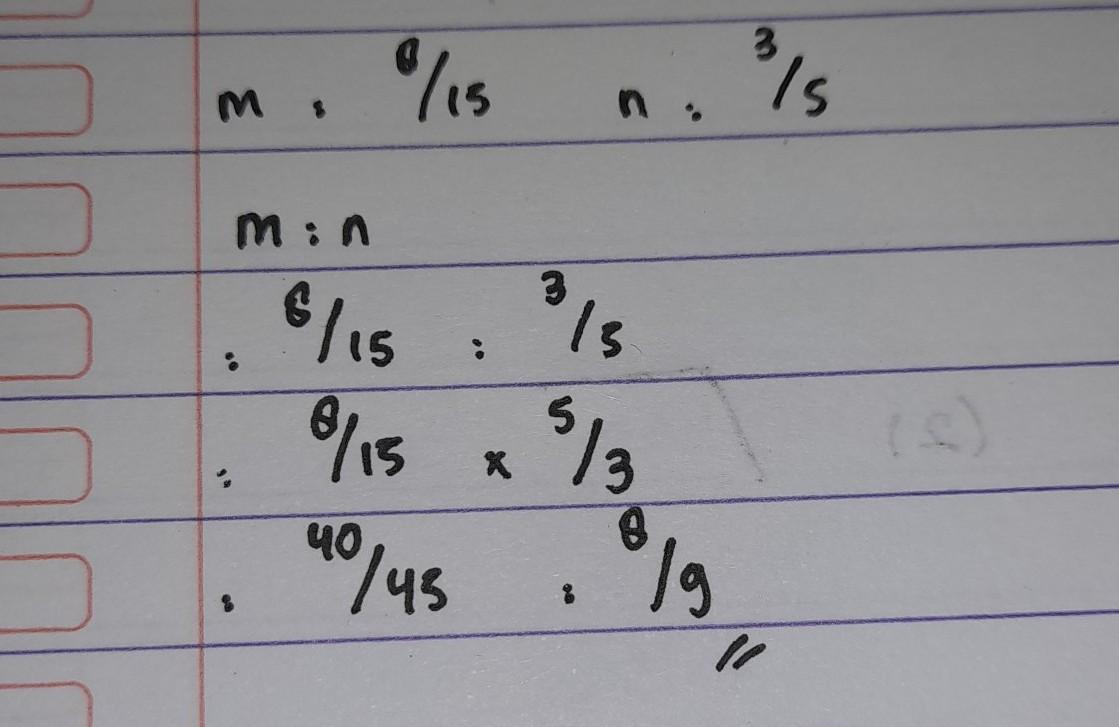 m : 8/15 n : 3/5
m : n
: 8/15 : 3/5
: 8/15 x 5/3
: 40/45 : 8/9